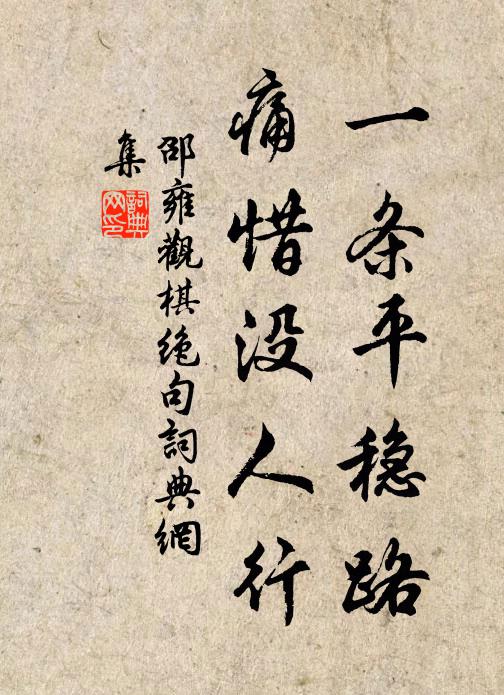 一条平稳路
痛惜没人行
邵雍觀棋绝句詞典網
集
詞典
网印